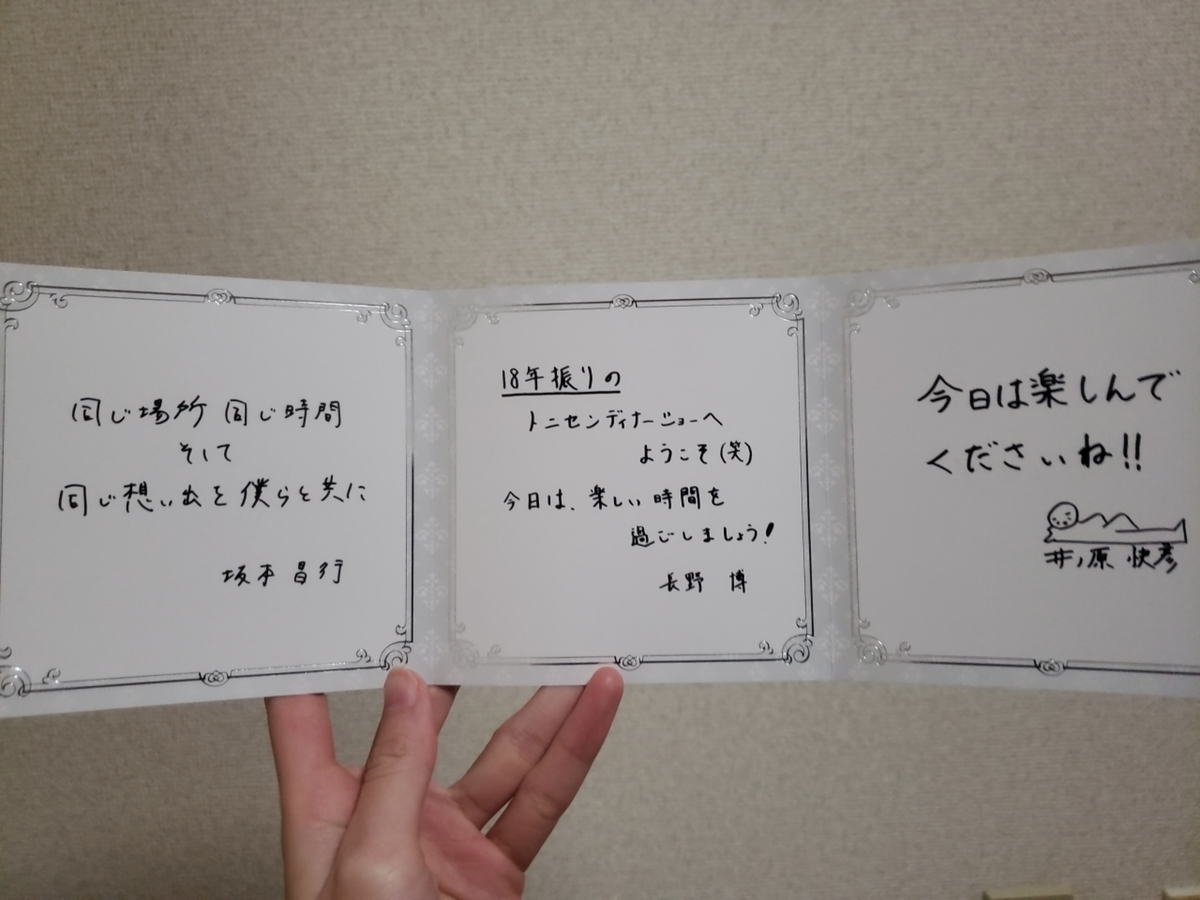 同じ場所 同じ時間
そして
同じ想い出を僕らと共に
坂本 昌行
18年振りの
トニセンディナーショーへ
ようこそ(笑)
今日は、楽しい時間を
過ごしましょう!
長野 博
今日は楽しんで
くださいね!!
井ノ原 快彦